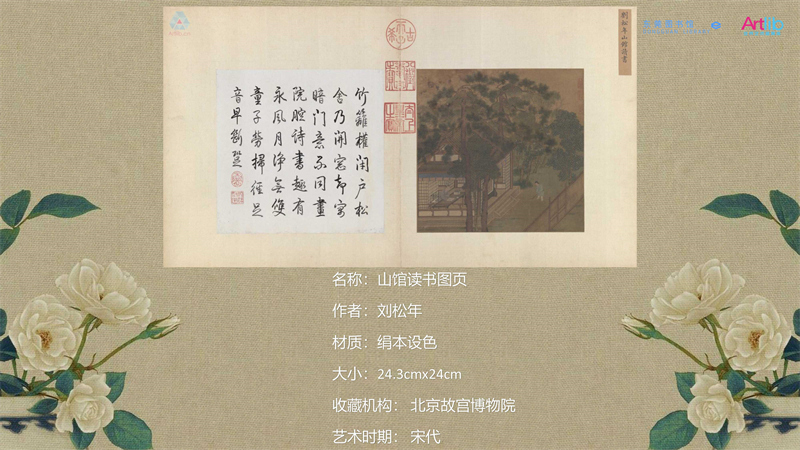 劉松年山館讀書
竹籬權閉户松
舍乃開窓却
暗门意不同畫
院腔詩書趣有
永風月浄無雙
童子勞掃徑足
音早斷跫
名称：山馆读书图页
作者：刘松年
材质：绢本设色
大小：24.3cmx24cm
收藏机构： 北京故宫博物院
艺术时期： 宋代